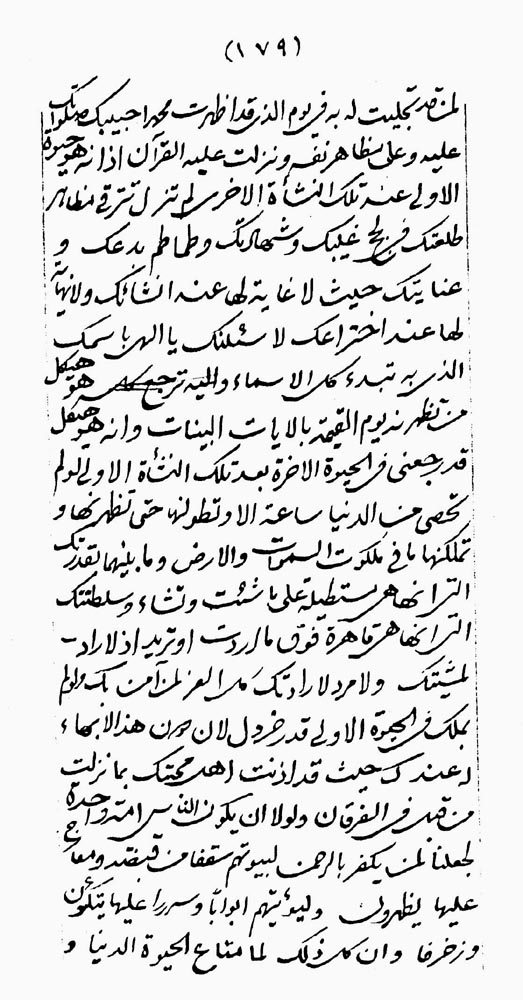 (١٧٩)
لمن قد تجليت له به في يوم الذي قد اظهرت محمدا حبيبك صلواتك
عليه وعلى مظاهر نفسه ونزلت عليه القرآن اذ انه هو حيوة
الاولى عند تلك النشأة الاخرى لم تزل تترقى مظاهر
طلعتك في لجج غيبك و طماطم بدعك و
عنايتك حيث لا غاية لها عند انشائك ولا نهاية
لها عند اختراعك لاسئلنك يا الهي باسمك
الذي به تبدء كل الاسماء واليه ترجع هو هيكل
من تظهرنه يوم القيمة بالايات البينات وانه هو هيكل
قد رجعني في الحيوة الاخرة بعد تلك النشأة الاولى لو لم
تحصى من الدنيا ساعة الا وتطولنها حتى تظهرنها و
تملكنها ما في ملكوت السموات والارض وما بينهما بقدرتك
التي انها هي مستطيلة على ما شئت وتشاء وسلطنتك
التي انها هي قاهرة فوق ما اردت او تريد اذ لا راد
لمشيتك ولا مرد لارادتك كل العز لمن آمن بك ولو لم
يملك في الحيوة الاولى قدر خردل لان هذا الابهاء
له عندك حيث قد اذنت اهل محبتك بما نزلت
من قبل في الفرقان ولولا ان يكون الناس امة واحدة
لجعلنا لمن يكفر بالرحمن لبيوتهم سقفا من فضة ومعارج
عليها يظهرون ولبيوتهم ابوابا وسررا عليها يتكؤن
وزخرفا وان كل ذلك لما متاع الحيوة الدنيا و